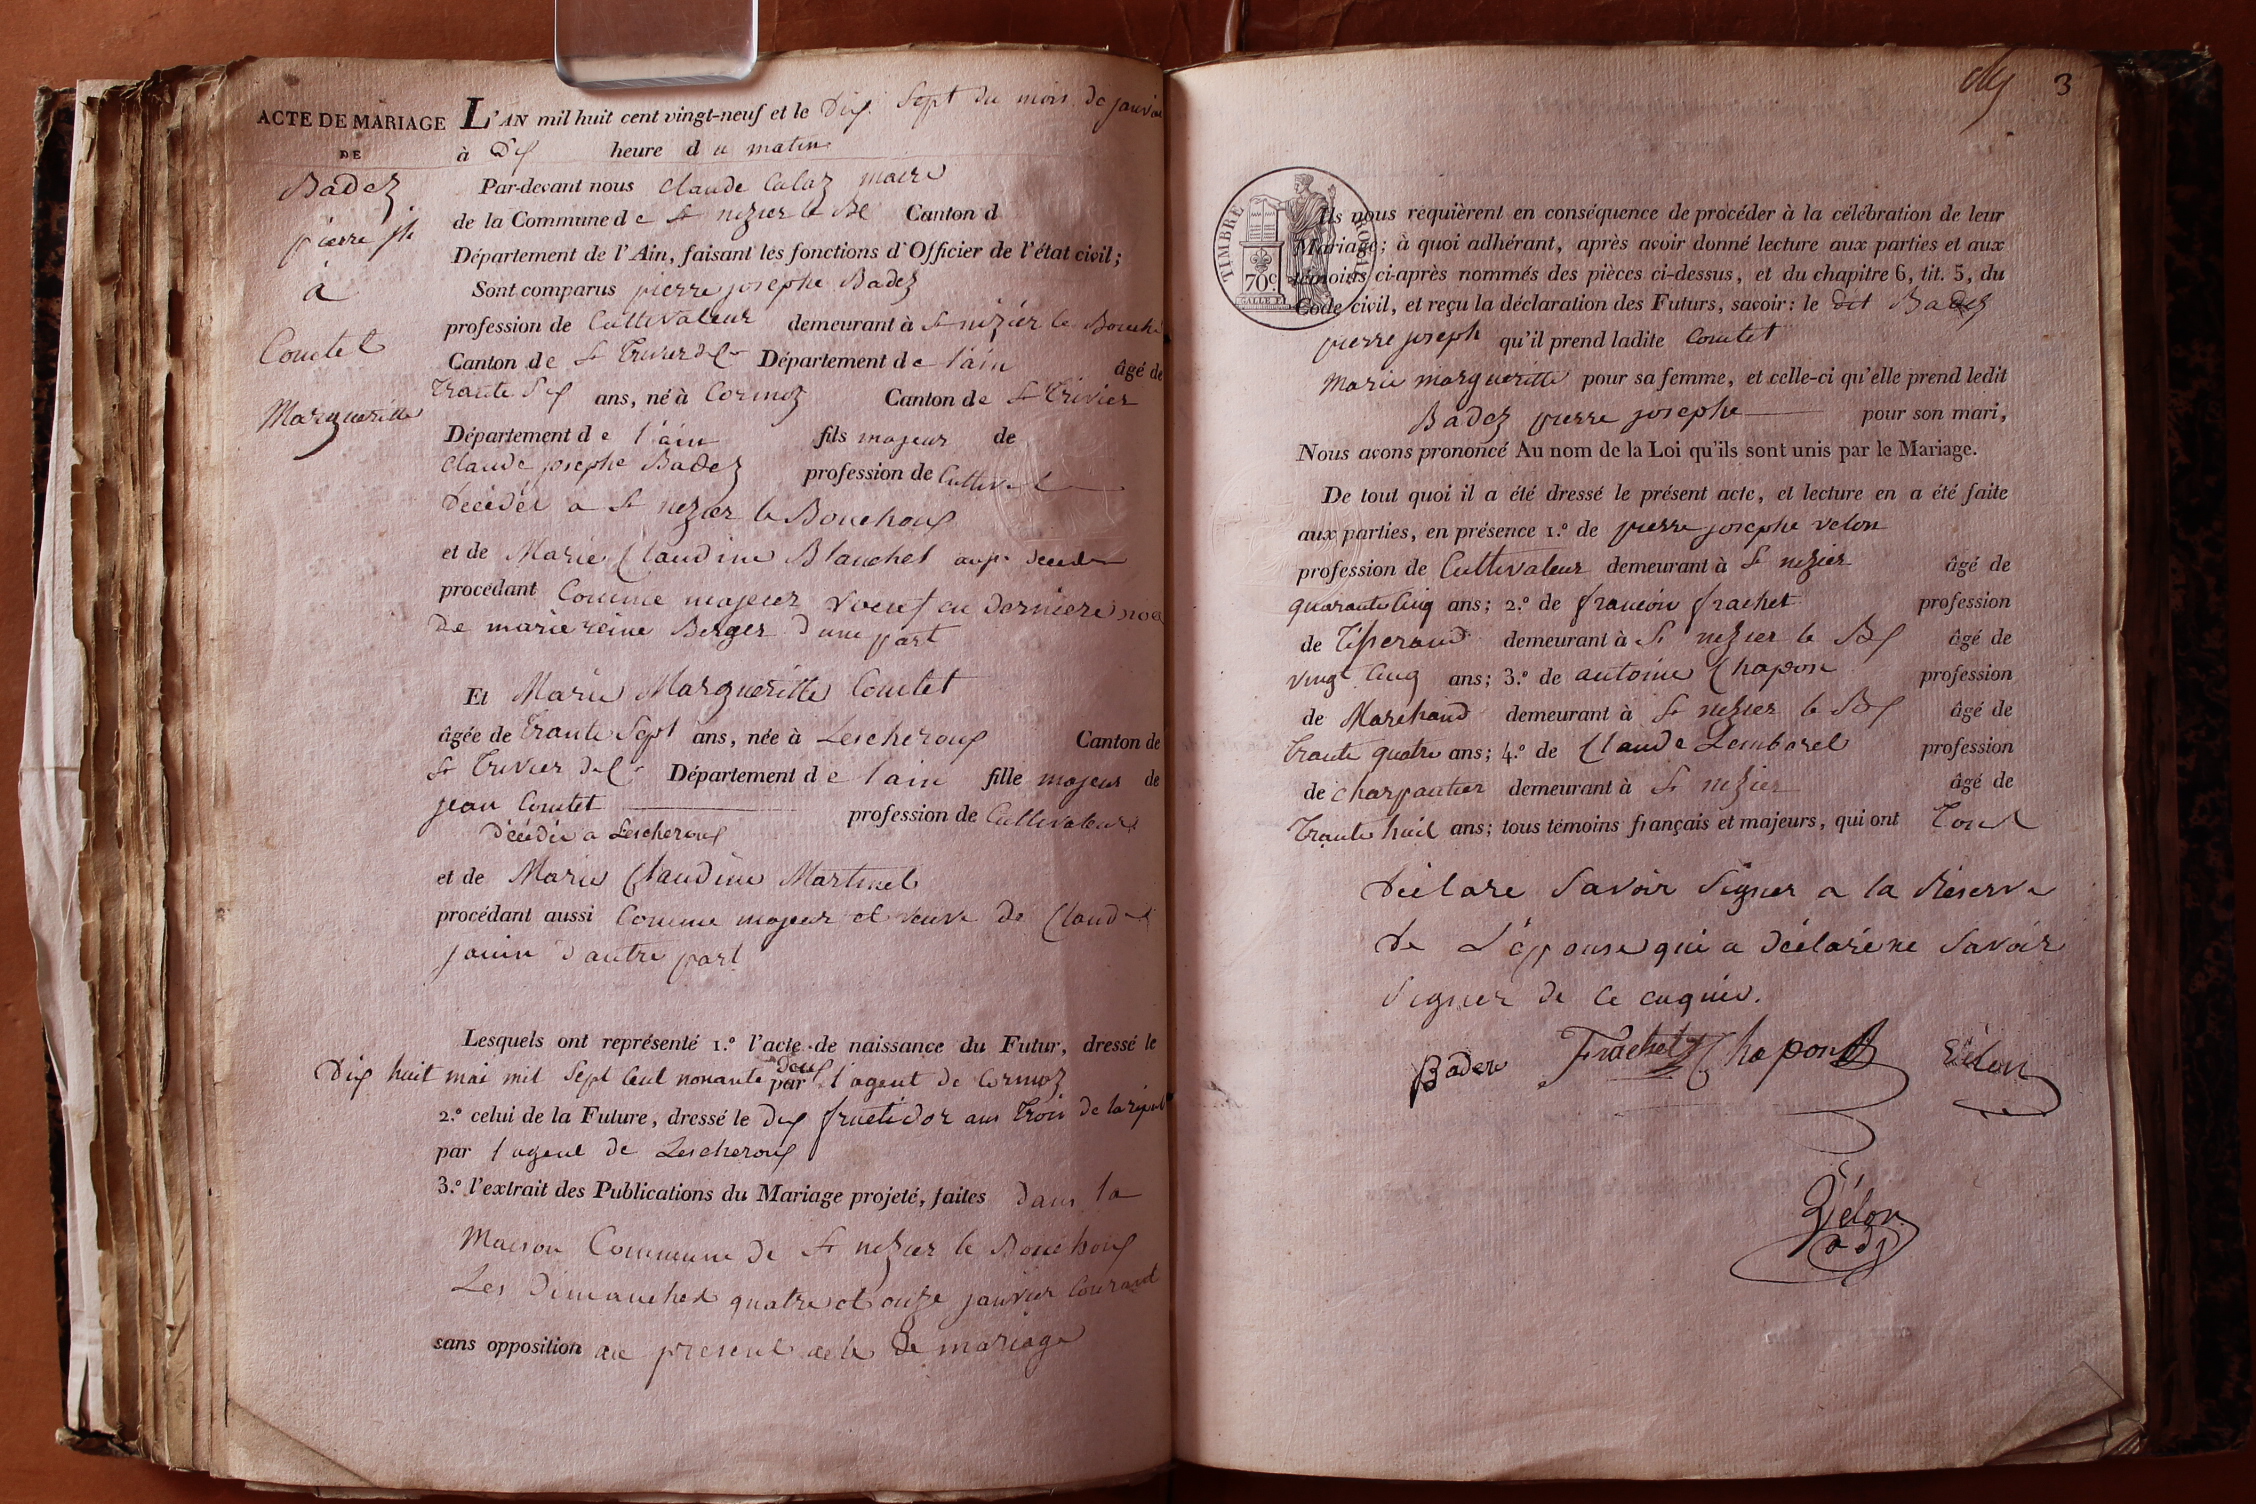 ACTE DE MARIAGE
DE
Badez
pierre jh
à
Coutet
Margueritte
L'AN mil huit cent vingt-neuf et le Dix Sept du mois de janvier
à Dix heure du matin
Par-devant nous Claude Calaz maire
de la Commune de St nizier le Bx Canton d
Département de l'Ain, faisant les fonctions d'Officier de l'état civil;
Sont comparus pierre josephe Badez
profession de Cultivateur demeurant à St nizier le Bouch
Canton de St Trivier de C Département de l'ain âgé de
Trante Six ans, né à Cormoz Canton de St Trivier
Département de l'ain fils majeur de
Claude josephe Badez profession de Cultivat
Décédé a St nizier le Bouchoux
et de Marie Claudine Blanchet
procédant Comme majeur Voeuf en derniere noce
de marie reine Berger d'une part
Et Marie Margueritte Coutet
âgée de trante Sept ans, née à Lescheroux Canton de
St Trivier de C Département de l'ain fille majeur de
jean Coutet profession de Cultivateur
Décédé a Lescheroux
et de Marie Claudine Martinet
procédant aussi Comme majeur et veuve de Claude
janin d'autre part
Lesquels ont représenté 1.º l'acte de naissance du Futur, dressé le
Dix huit mai mil Sept Cent nonante deux par l'agent de Cormoz
2.º celui de la Future, dressé le Dix fructidor ans Trois de la répub
par l'agent de Lescheroux
3.º l'extrait des Publications du Mariage projeté, faites Dans la
Maison Commune de St nizier le Bouchoux
Les Dimanches quatre et onze janvier Courant
sans opposition au present acte De mariage
3
TIMBRE ROYAL
70c.
Ils nous requièrent en conséquence de procéder à la célébration de leur
Mariage; à quoi adhérant, après avoir donné lecture aux parties et aux
témoins ci-après nommés des pièces ci-dessus, et du chapitre 6, tit. 5, du
Code civil, et reçu la déclaration des Futurs, savoir: le dit Badez
pierre joseph qu'il prend ladite Coutet
Marie margueritte pour sa femme, et celle-ci qu'elle prend ledit
Badez pierre josephe pour son mari,
Nous avons prononcé Au nom de la Loi qu'ils sont unis par le Mariage.
De tout quoi il a été dressé le présent acte, et lecture en a été faite
aux parties, en présence 1.º de pierre josephe velon
profession de Cultivateur demeurant à St nizier âgé de
quarante Cinq ans; 2.º de francois frachet profession
de Tisserand demeurant à St nizier le Bx âgé de
vingt Cinq ans; 3.º de antoine Chapon profession
de Marchand demeurant à St nizier le Bx âgé de
trante quatre ans; 4.º de Claude Lemborel profession
de charpantier demeurant à St nizier âgé de
Trante huit ans; tous témoins français et majeurs, qui ont Tous
Déclare Savoir Signer a la Réserve
de L'épouse qui a déclaré ne Savoir
Signer de Ce enquis.
Bader Frachet Chapon Vélon
Vélon
adj